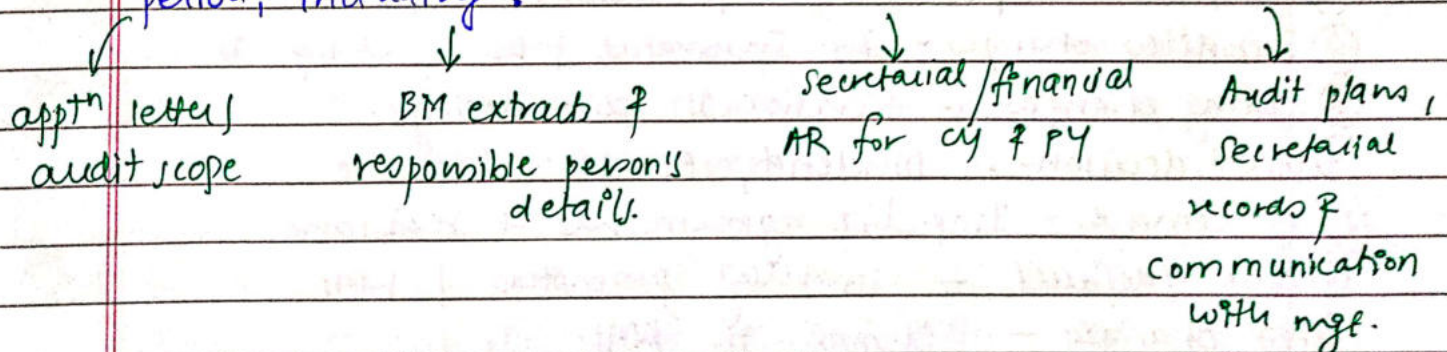 period, including :
apptn letters
audit scope
BM extracts &
responsible person's
details.
secretarial / financial
AR for CY & PY
Audit plans,
secretarial
records &
communication
with mgt.